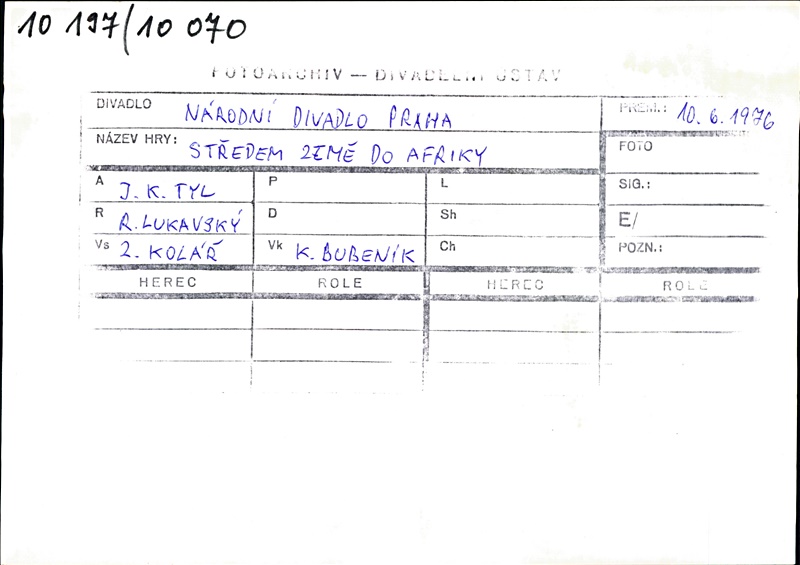 10 197/10 070
FOTOARCHIV — DIVADELNÍ ÚSTAV
DIVADLO NÁRODNÍ DIVADLO PRAHA PREM.: 10. 6. 1976
NÁZEV HRY: STŘEDEM ZEMĚ DO AFRIKY FOTO
A J. K. TYL P L SIG.:
R R. LUKAVSKÝ D Sh E/
Vs Z. KOLÁŘ Vk K. BUBENÍK Ch POZN.:
HEREC ROLE HEREC ROLE